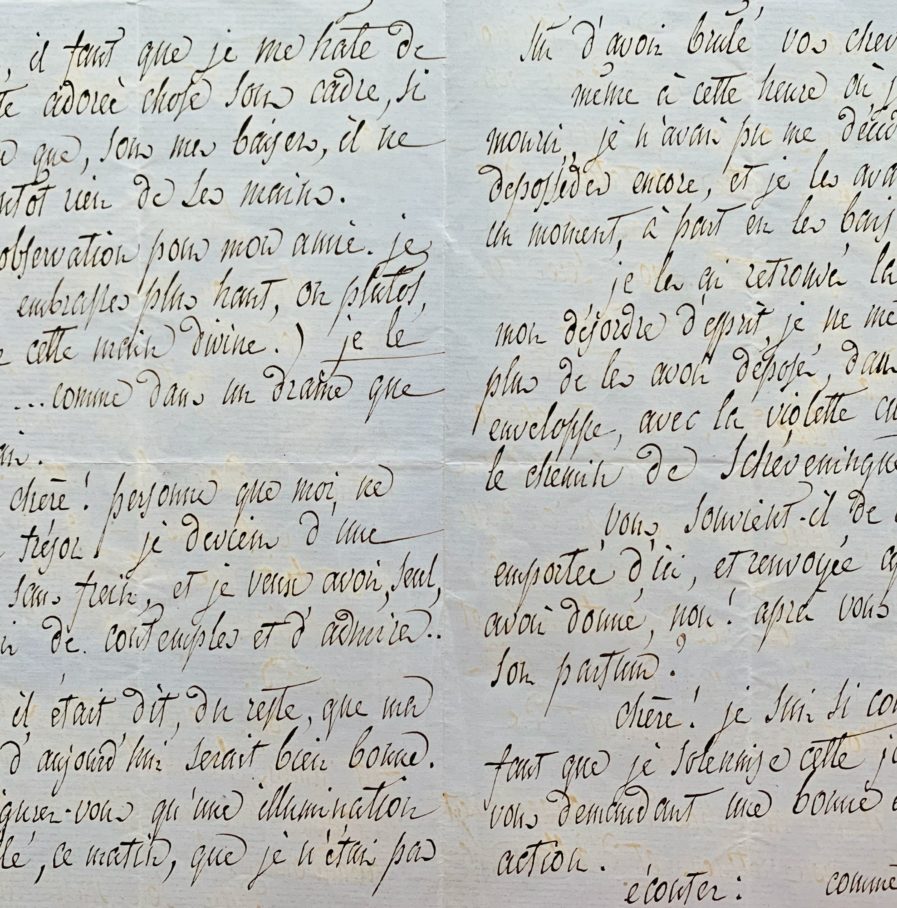 , il faut que je me hâte de
adorée chose sous cadre, si
que, sous mes baisers, il ne
rien de ses mains.
observation pour mon amie. je
embrasser plus haut, ou plutôt,
cette main divine.) je le
... comme dans un drame que
chère! personne que moi ne
trésor je deviens d'une
sans frein, et je veux avoir, seul,
de contempler et d'admirer..
il était dit, du reste, que ma
d'aujourd'hui serait bien bonne.
vous qu'une illumination
, ce matin, que je n'étais pas
sûr d'avoir brûlé vos chev
même à cette heure où j
mourir, je n'avais pu me décid
déposséder encore, et je les ava
un moment, à part en les bais
je les ai retrouvés la
mon désordre d'esprit, je ne me
plus de les avoir déposés, dans
enveloppe, avec la violette cu
le chemin de Schéveningue
vous souvient-il de
emportée d'ici, et renvoyée ap
avoir donné, non! après vous
son parfum?
chère! je suis si con
faut que je solennise cette jo
vous demandant une bonne e
action.
écouter: comme